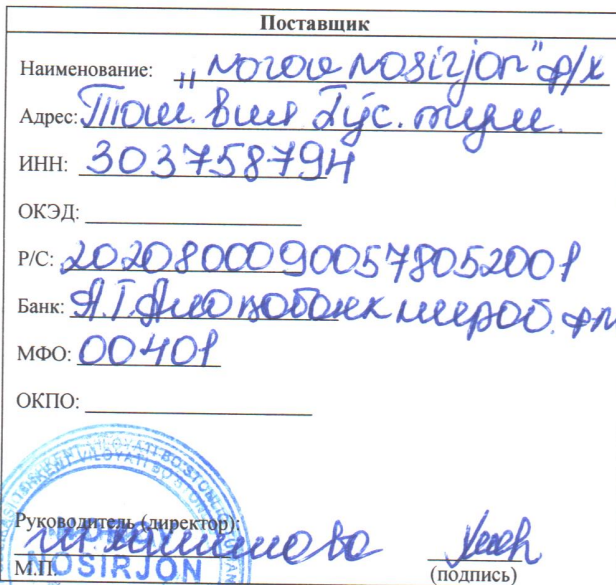 Поставщик
Наименование: „Norov Nosirjon" ф/х
Адрес: Тош. вил Бўс. тум.
ИНН: 303758794
ОКЭД:
Р/С: 20208000900578052001
Банк:
МФО: 00401
ОКПО:
Руководитель (директор):
М.П.
NOSIRJON
(подпись)